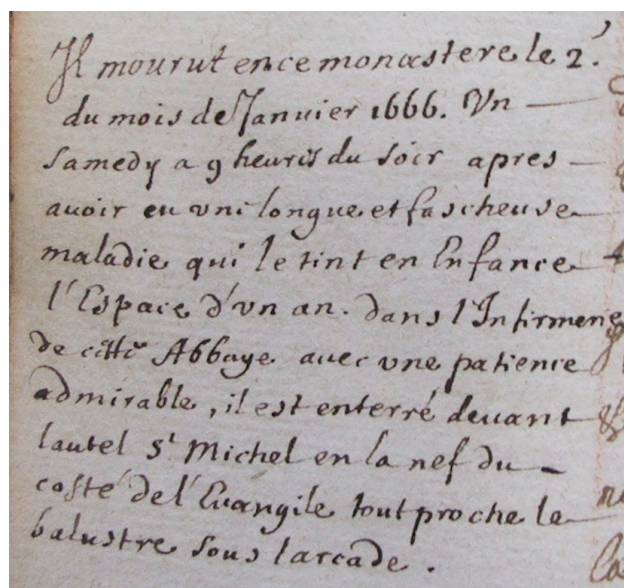 Il mourut en ce monastere le 2.
du mois de Januier 1666. Vn
samedy a 9 heures du soir apres
auoir eu vne longue et fascheuse
maladie qui le tint en Enfance
l'Espace d'vn an. dans l'Infirmerie
de cette Abbaye auec vne patience
admirable, il est enterré deuant
lautel St Michel en la nef du
costé de l'Euangile tout proche le
balustre sous larcade.